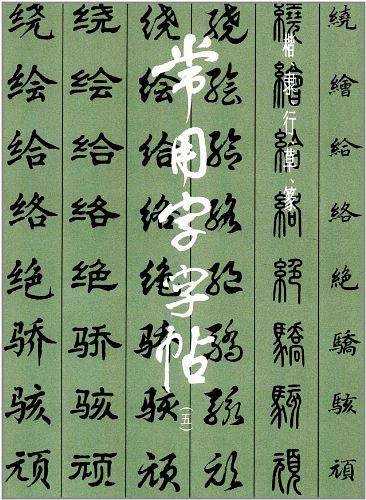 常用字字帖
（五）
楷、隶、行、草、篆
绕绘给络绝骄骇顽
绕绘给络绝骄骇顽
绕绘给络绝骄骇顽
绕绘给络绝骄骇顽
繞繪給絡絕驕駭頑
繞繪給絡絶驕駭頑